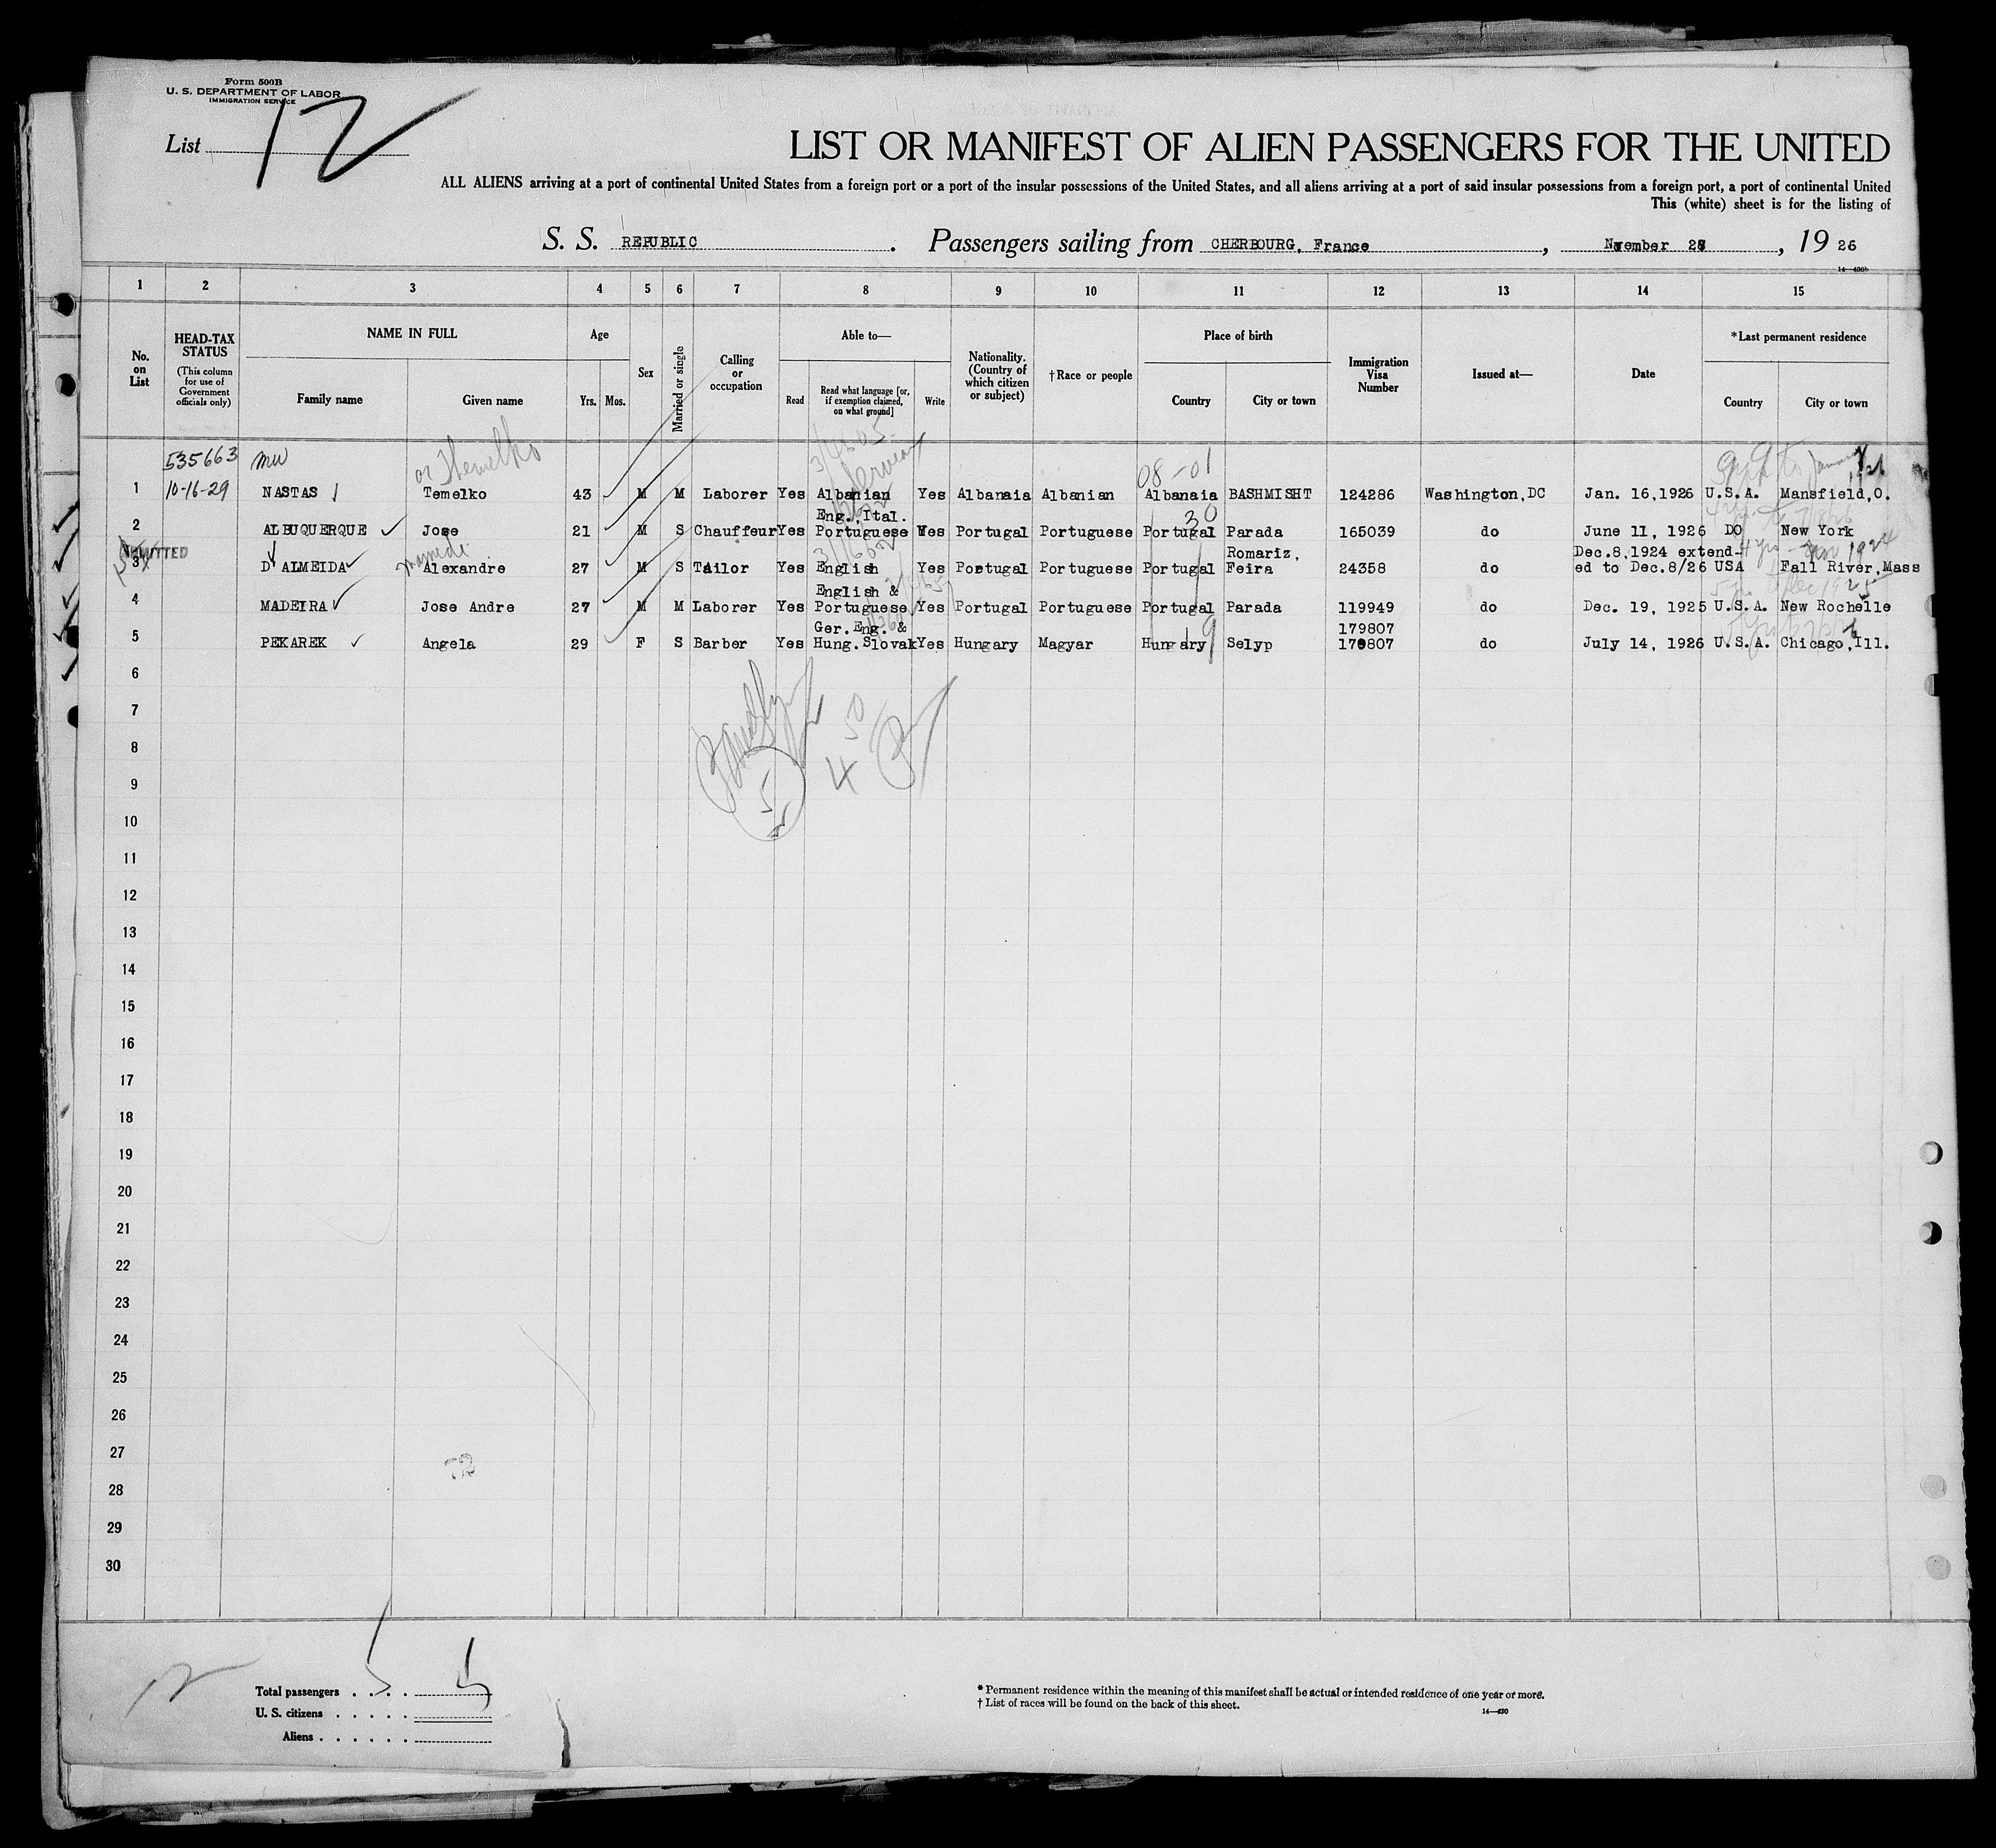 Form 500B
U. S. DEPARTMENT OF LABOR
IMMIGRATION SERVICE
List 12
LIST OR MANIFEST OF ALIEN PASSENGERS FOR THE UNITED
ALL ALIENS arriving at a port of continental United States from a foreign port or a port of the insular possessions of the United States, and all aliens arriving at a port of said insular possessions from a foreign port, a port of continental United
This (white) sheet is for the listing of
S. S. REPUBLIC. Passengers sailing from CHERBOURG, France, 1926
14—430b
1 2 3 4 5 6 7 8 9 10 11 12 13 14 15
No. on List
HEAD-TAX STATUS
(This column for use of Government officials only)
NAME IN FULL
Family name Given name
Age
Yrs. Mos.
Sex
Married or single
Calling or occupation
Able to—
Read
Read what language [or, if exemption claimed, on what ground]
Write
Nationality. (Country of which citizen or subject)
†Race or people
Place of birth
Country City or town
Immigration Visa Number
Issued at—
Date
*Last permanent residence
Country City or town
535663 mw or Themelko 08-01
1 10-16-29 NASTAS Temelko 43 M M Laborer Yes Albanian Yes Albanaia Albanian Albanaia BASHMISHT 124286 Washington, DC Jan. 16,1926 U.S.A. Mansfield,O.
Eng.,Ital. 30
2 ALBUQUERQUE Jose 21 M S Chauffeur Yes Portuguese Yes Portugal Portuguese Portugal Parada 165039 do June 11, 1926 DO New York
ADMITTED Romariz, Dec.8,1924 extend- 1924
3 D'ALMEIDA Alexandre 27 M S Tailor Yes English Yes Portugal Portuguese Portugal Feira 24358 do ed to Dec.8/26 USA Fall River,Mass
English &
4 MADEIRA Jose Andre 27 M M Laborer Yes Portuguese Yes Portugal Portuguese Portugal Parada 119949 do Dec. 19, 1925 U.S.A. New Rochelle
Ger.Eng. & 179807
5 PEKAREK Angela 29 F S Barber Yes Hung.Slovak Yes Hungary Magyar Hungary Selyp 179807 do July 14, 1926 U.S.A. Chicago,Ill.
6
7
8
9
10
11
12
13
14
15
16
17
18
19
20
21
22
23
24
25
26
27
28
29
30
Total passengers . . . . 5
U. S. citizens . . . . .
Aliens . . . . . .
* Permanent residence within the meaning of this manifest shall be actual or intended residence of one year or more.
† List of races will be found on the back of this sheet.
14—430